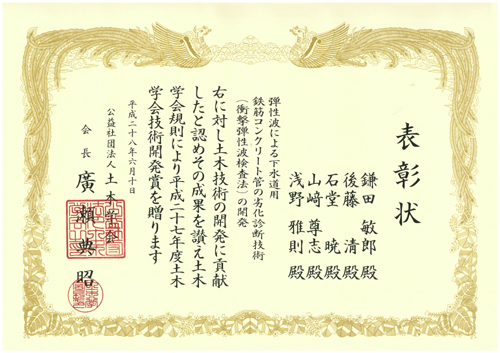 表彰状
鎌田 敏郎 殿
後藤 清 殿
石堂 暁 殿
山崎 尊志 殿
浅野 雅則 殿
弾性波による下水道用
鉄筋コンクリート管の劣化診断技術
(衝撃弾性波検査法)の開発
右に対し土木技術の開発に貢献
したと認めその成果を讃え土木
学会規則により平成二十七年度土木
学会技術開発賞を贈ります
平成二十八年六月十日
公益社団法人 土木学会
会長 廣瀬典昭